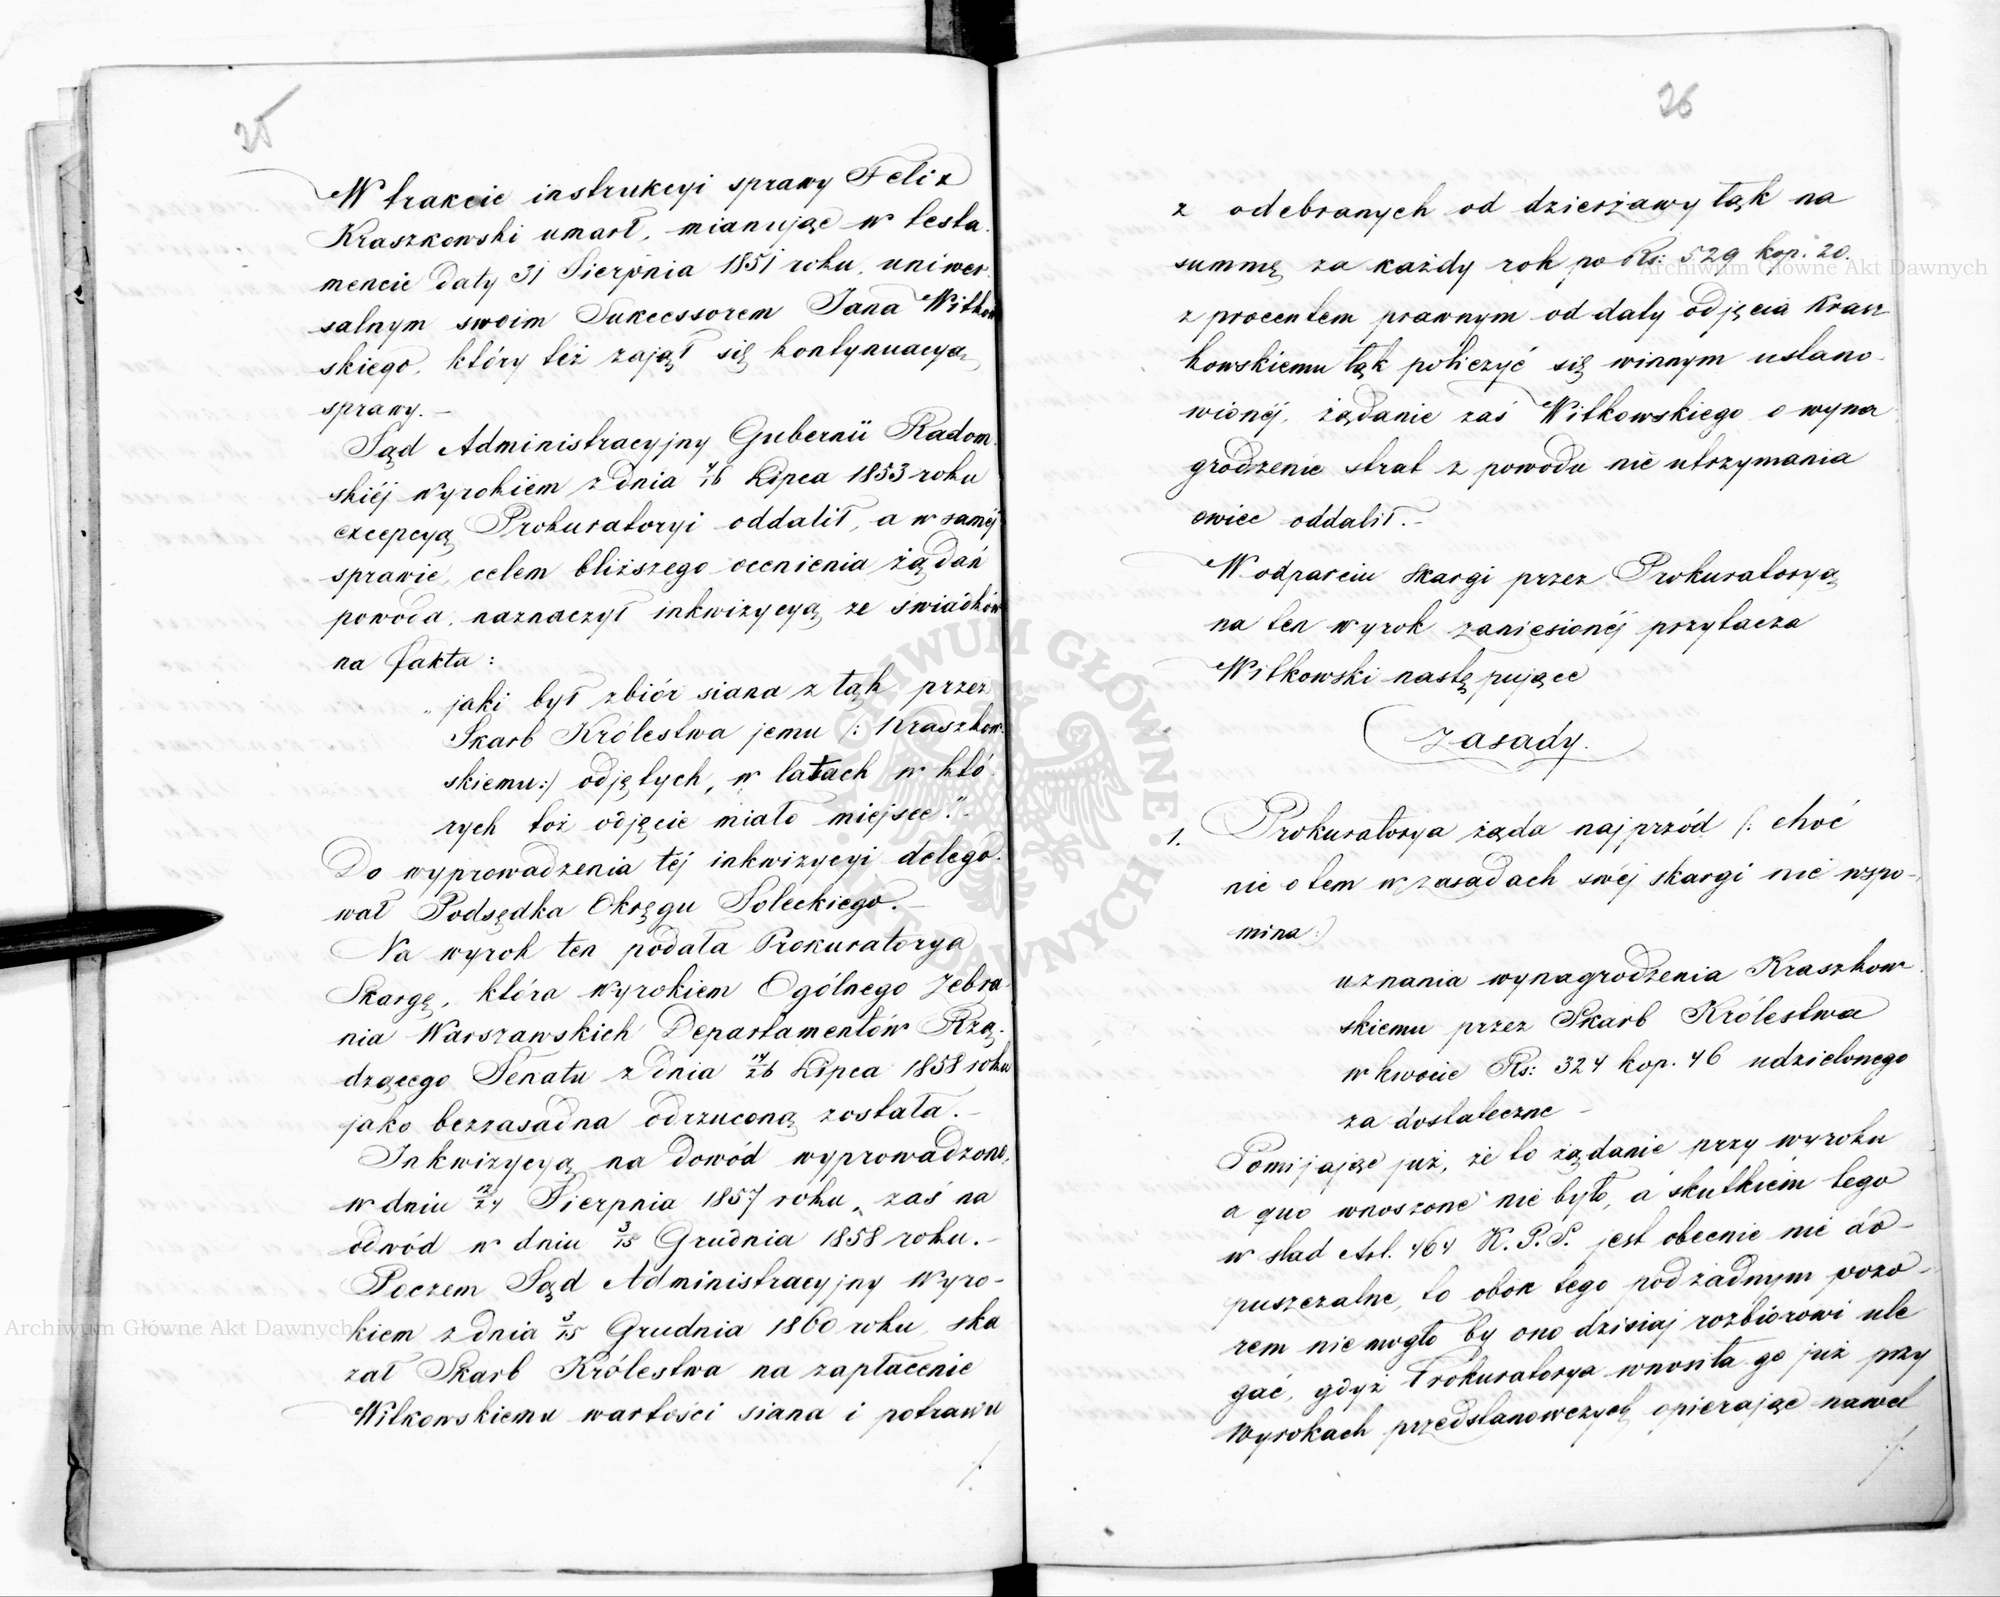 25
W trakcie instrukcyi sprawy Felix
Kraszkowski umarł, mianując w testa-
mencie daty 31 Sierpnia 1851 roku, uniwer-
salnym swoim Sukcessorem Jana Witkow
skiego, który też zajął się kontynuacyą
sprawy.—
Sąd Administracyjny Gubernii Radom-
skiéj wyrokiem z dnia 4/16 Lipca 1853 roku
excepcyą Prokuratoryi oddalił, a w saméj
sprawie, celem bliższego ocenienia żądań
powoda, naznaczył inkwizycyą ze świadków
na fakta:
„jaki był zbiór siana z łąk przez
Skarb Królestwa jemu /: Kraszkow-
skiemu:/ odjętych, w latach w któ-
rych toż odjęcie miało miejsce."—
Do wyprowadzenia téj inkwizycyi delego-
wał Podsędka Okręgu Soleckiego.—
Na wyrok ten podała Prokuratorya
Skargę, która wyrokiem Ogólnego Zebra-
nia Warszawskich Departamentów Rzą-
dzącego Senatu z dnia 14/26 Lipca 1858 roku
jako bezzasadna odrzuconą została.—
Inkwizycyą na dowód wyprowadzono,
w dniu 12/24 Sierpnia 1857 roku, zaś na
odwód w dniu 3/15 Grudnia 1858 roku.—
Poczem Sąd Administracyjny Wyro-
kiem z dnia 3/15 Grudnia 1860 roku, ska
zał Skarb Królestwa na zapłacenie
Witkowskiemu wartości siana i potrawu
./.
26
z odebranych od dzierżawy łąk na
summę za każdy rok po Rs: 529 kop. 20.
z procentem prawnym od daty odjęcia Krasz
kowskiemu łąk policzyć się winnym ustano-
wionéj, żądanie zaś Witkowskiego o wyna
grodzenie strat z powodu nie utrzymania
owiec oddalił.—
W odparciu skargi przez Prokuratoryą
na ten wyrok zaniesionéj przytacza
Witkowski następujące
Zasady.
1. Prokuratorya żąda najprzód /: choć
nic o tem w zasadach swéj skargi nie wspo-
mina:/
uznania wynagrodzenia Kraszkow-
skiemu przez Skarb Królestwa
w kwocie Rs: 324 kop. 46 udzielonego
za dostateczne —
Pomijając już, że to żądanie przy wyroku
a quo wnoszone nie było, a skutkiem tego
w ślad Art. 464 K.P.S. jest obecnie nie do-
puszczalne, to obok tego pod żadnym pozo-
rem nie mogło by ono dzisiaj rozbiorowi ule
gać, gdyż Prokuratorya wnosiła go już przy
Wyrokach przedstanowczych opierając nawet
./.
Archiwum Główne Akt Dawnych
Archiwum Główne Akt Dawnych
ARCHIWUM GŁÓWNE AKT DAWNYCH